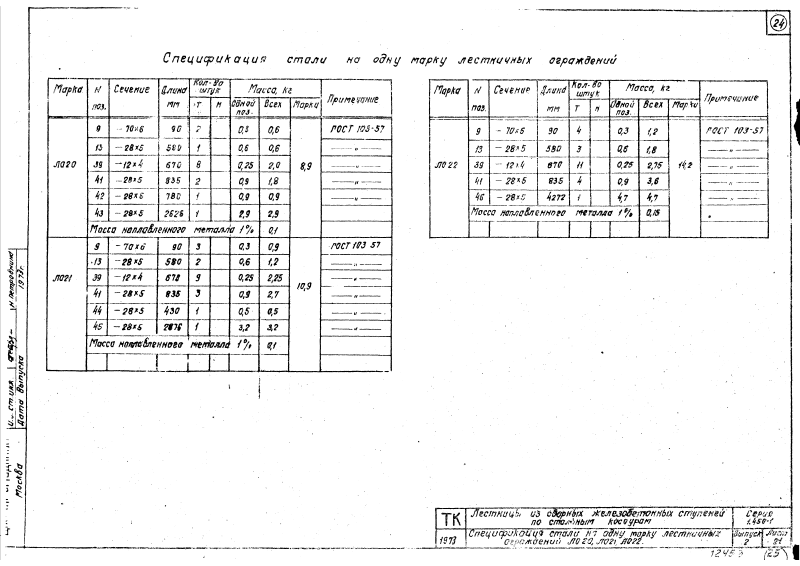 24
Спецификация стали на одну марку лестничных ограждений
Марка N поз. Сечение Длина мм Кол-во штук Т н Масса, кг Одной поз. Всех Марки Примечание
ЛО20 8,9
9 -70×6 90 2 0,3 0,6 ГОСТ 103-57
13 -28×5 580 1 0,6 0,6 -"-
39 -12×4 670 8 0,25 2,0 -"-
41 -28×5 835 2 0,9 1,8 -"-
42 -28×5 780 1 0,9 0,9 -"-
43 -28×5 2626 1 2,9 2,9 -"-
Масса наплавленного металла 1% 0,1
ЛО21 10,9
9 -70×6 90 3 0,3 0,9 ГОСТ 103 57
13 -28×5 580 2 0,6 1,2 -"-
39 -12×4 670 9 0,25 2,25 -"-
41 -28×5 835 3 0,9 2,7 -"-
44 -28×5 430 1 0,5 0,5 -"-
45 -28×5 2876 1 3,2 3,2 -"-
Масса наплавленного металла 1% 0,1
Марка N поз. Сечение Длина мм Кол-во штук Т н Масса, кг Одной поз. Всех Марки Примечание
ЛО22 14,2
9 -70×6 90 4 0,3 1,2 ГОСТ 103-57
13 -28×5 580 3 0,6 1,8 -"-
39 -12×4 670 11 0,25 2,75 -"-
41 -28×5 835 4 0,9 3,6 -"-
46 -28×5 4272 1 4,7 4,7 -"-
Масса наплавленного металла 1% 0,15 "
Москва
Дата выпуска 1973г.
ТК
1973
Лестницы из сборных железобетонных ступеней
по стальным косоурам
Серия
1.450-1
Спецификация стали на одну марку лестничных
ограждений ЛО20, ЛО21, ЛО22.
Выпуск
2
Лист
21
(25)